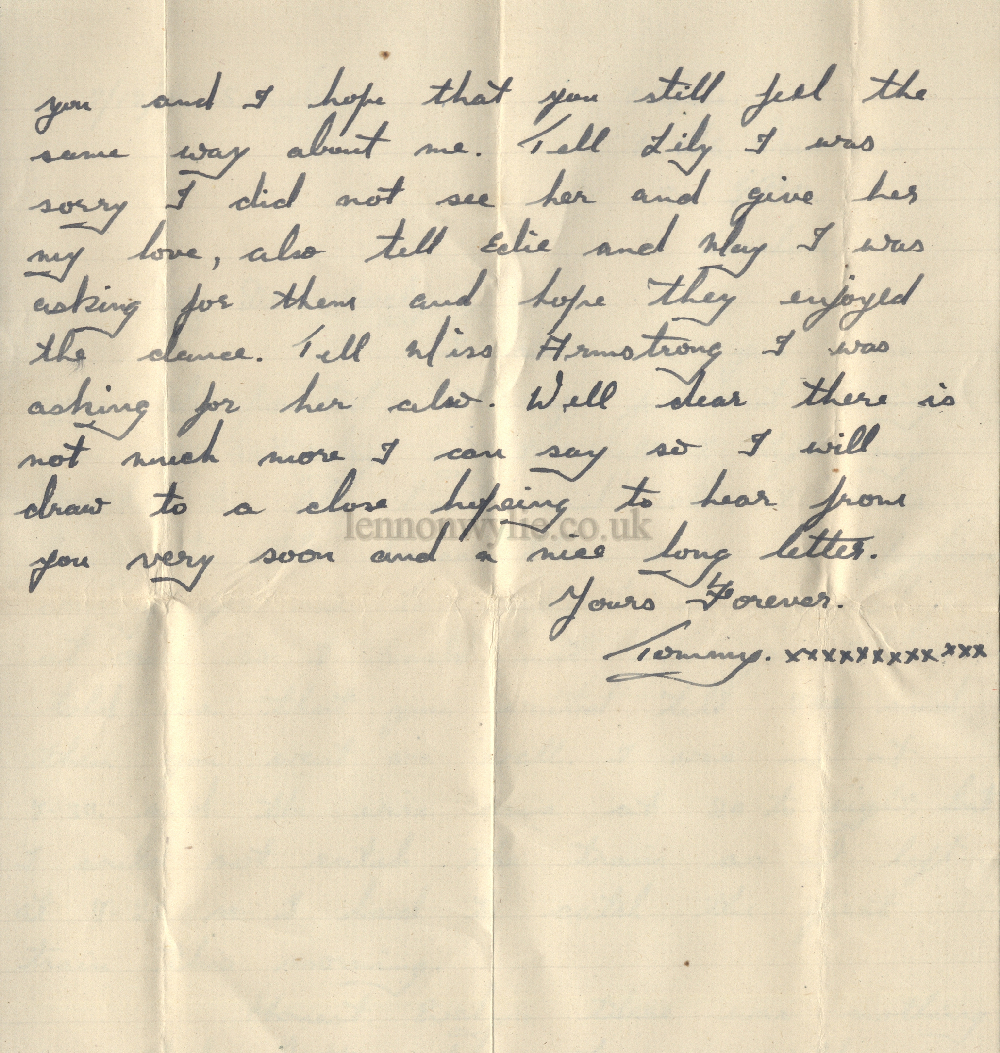 you and I hope that you still feel the
same way about me. Tell Lily I was
sorry I did not see her and give her
my love, also tell Edie and May I was
asking for them and hope they enjoyed
the dance. Tell Miss Armstrong I was
asking for her also. Well dear there is
not much more I can say so I will
draw to a close hopeing to hear from
lennonwylie.co.uk
you very soon and a nice long letter.
Yours Forever.
Tommy. xxxxxxxxxxxx